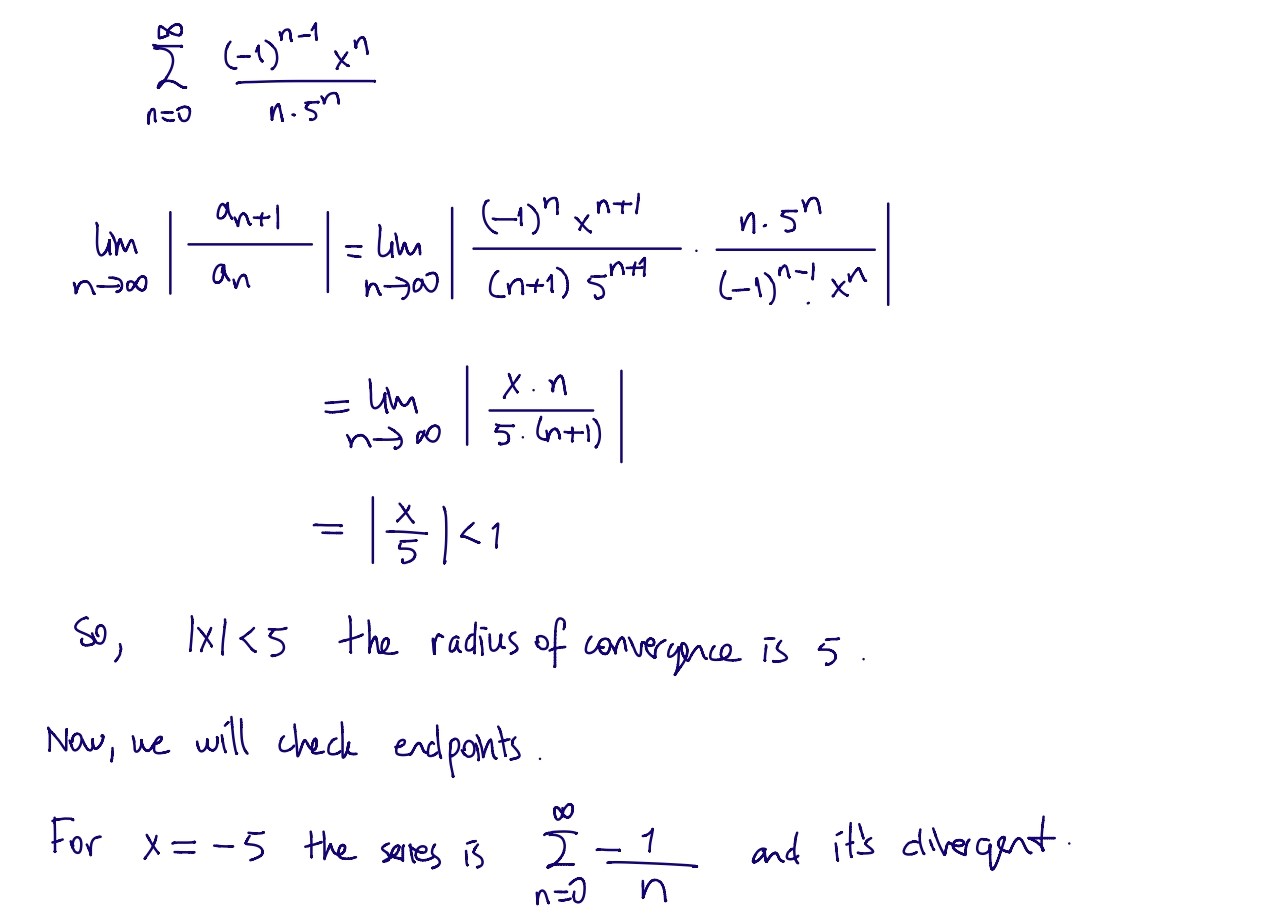 ∞ Σ n=0 (-1)^{n-1} x^n / n · 5^n
lim n→∞ | a_{n+1} / a_n | = lim n→∞ | (-1)^n x^{n+1} / (n+1) 5^{n+1} · n · 5^n / (-1)^{n-1} · x^n |
= lim n→∞ | x · n / 5 · (n+1) |
= | x / 5 | < 1
So, |x| < 5 the radius of convergence is 5 .
Now, we will check endpoints .
For x = -5 the series is ∞ Σ n=0 - 1 / n and it's divergent .